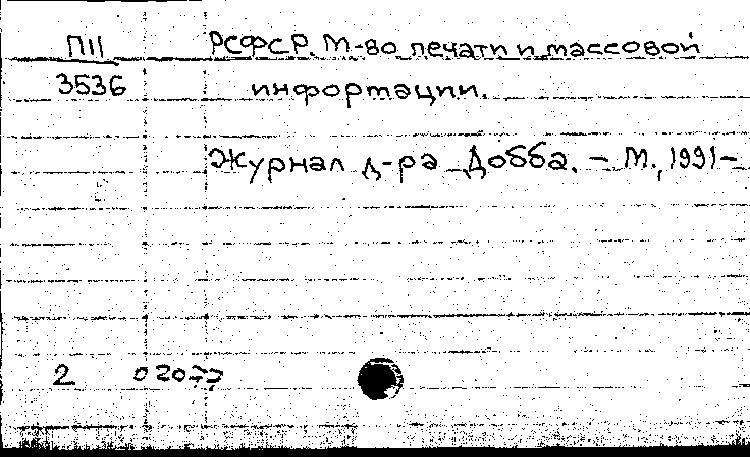 П11 РСФСР. М-во печати и массовой
3536 информации.
Журнал д-ра Добба. – М., 1991–
2 02077